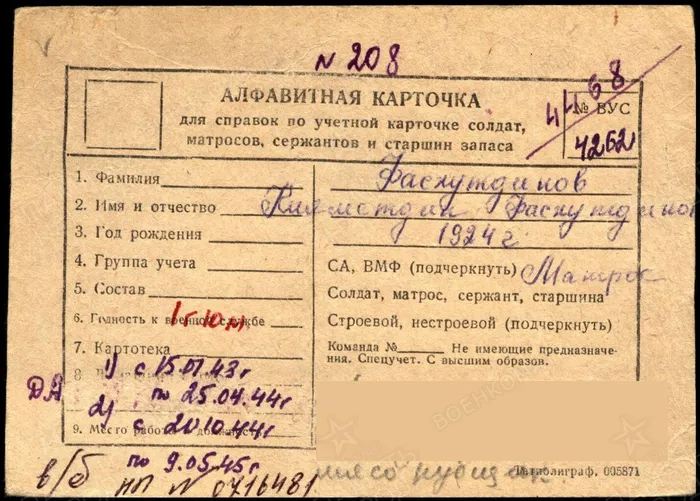 N 208
АЛФАВИТНАЯ КАРТОЧКА
для справок по учетной карточке солдат,
матросов, сержантов и старшин запаса
№ ВУС
4262
1. Фамилия Фасхутдинов
2. Имя и отчество Кияметдин Фасхутдинов
3. Год рождения 1924 г
4. Группа учета
СА, ВМФ (подчеркнуть) Матрос
5. Состав
Солдат, матрос, сержант, старшина
6. Годность к военной службе
Строевой, нестроевой (подчеркнуть)
7. Картотека
Команда № Не имеющие предназначе-
ния. Спецучет. С высшим образов.
1) с 15.01.43г
8
ДА по 25.04.44г
2) с 20.10.44г
9. Место работы
по 9.05.45г
в/б НП N 0716481
Татполиграф. 005871